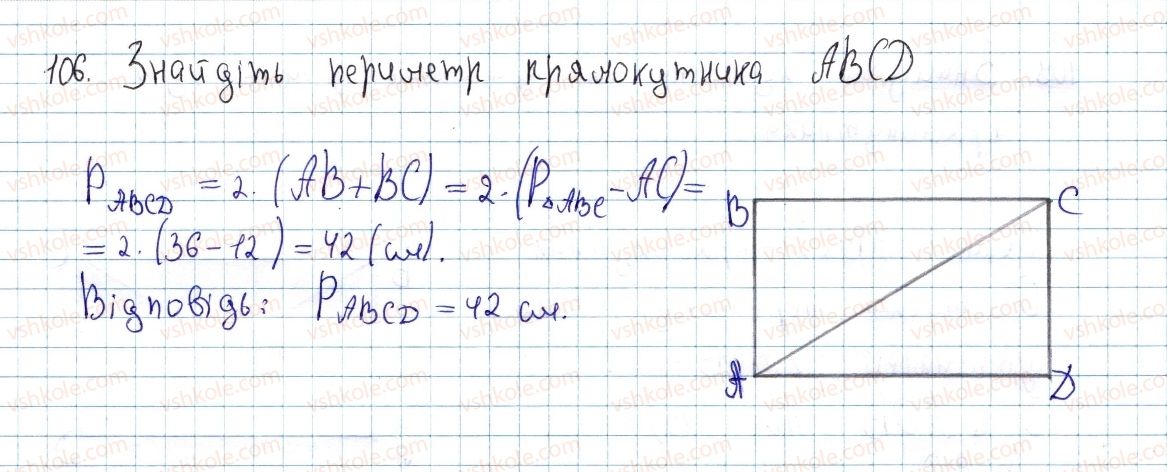 106. Знайдіть периметр прямокутника ABCD
P_ABCD = 2·(AB+BC) = 2·(P_△ABC - AC) =
= 2·(36-12) = 42 (см).
Відповідь: P_ABCD = 42 см.
B C
A D
vshkole.com